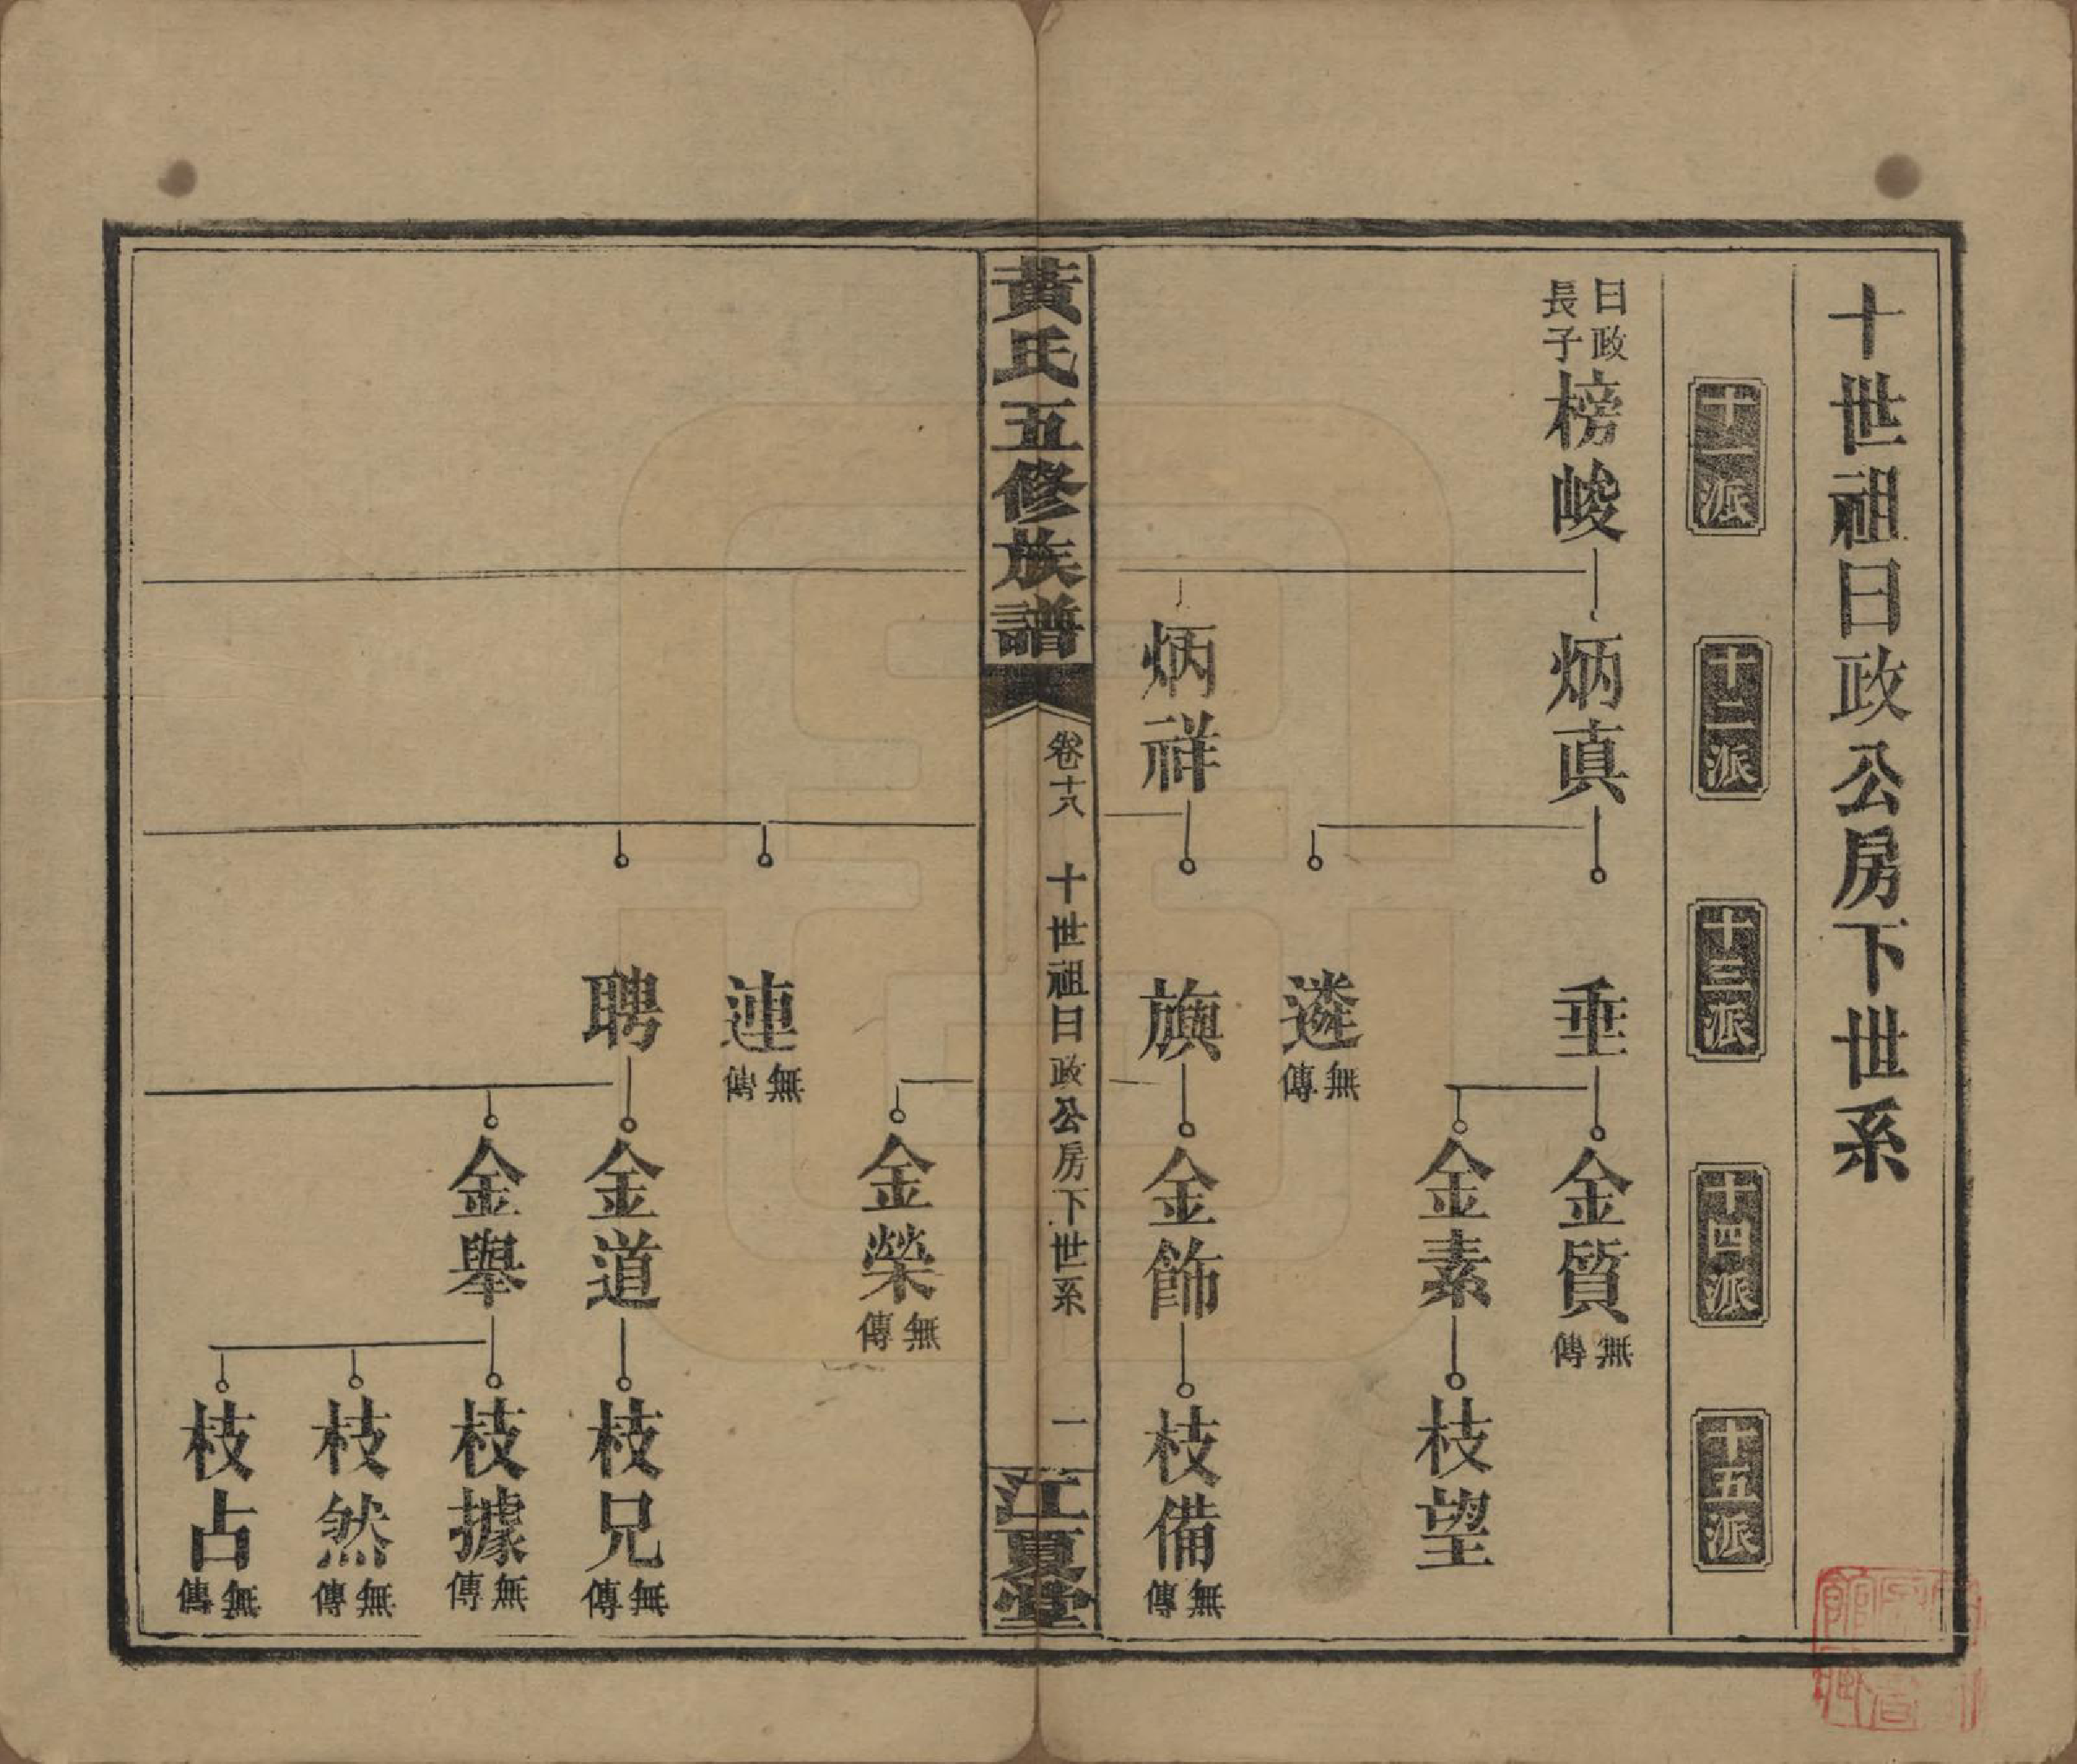 十世祖曰政公房下世系
十一派
十二派
十三派
十四派
十五派
曰政長子榜峻
炳真
垂
金質無傳
金素
枝望
遴無傳
炳祥
旟
金飾
枝備無傳
黃氏五修族譜
卷十八
十世祖曰政公房下世系
一
江夏堂
金榮無傳
連無傳
聘
金道
枝兄無傳
金舉
枝據無傳
枝然無傳
枝占無傳